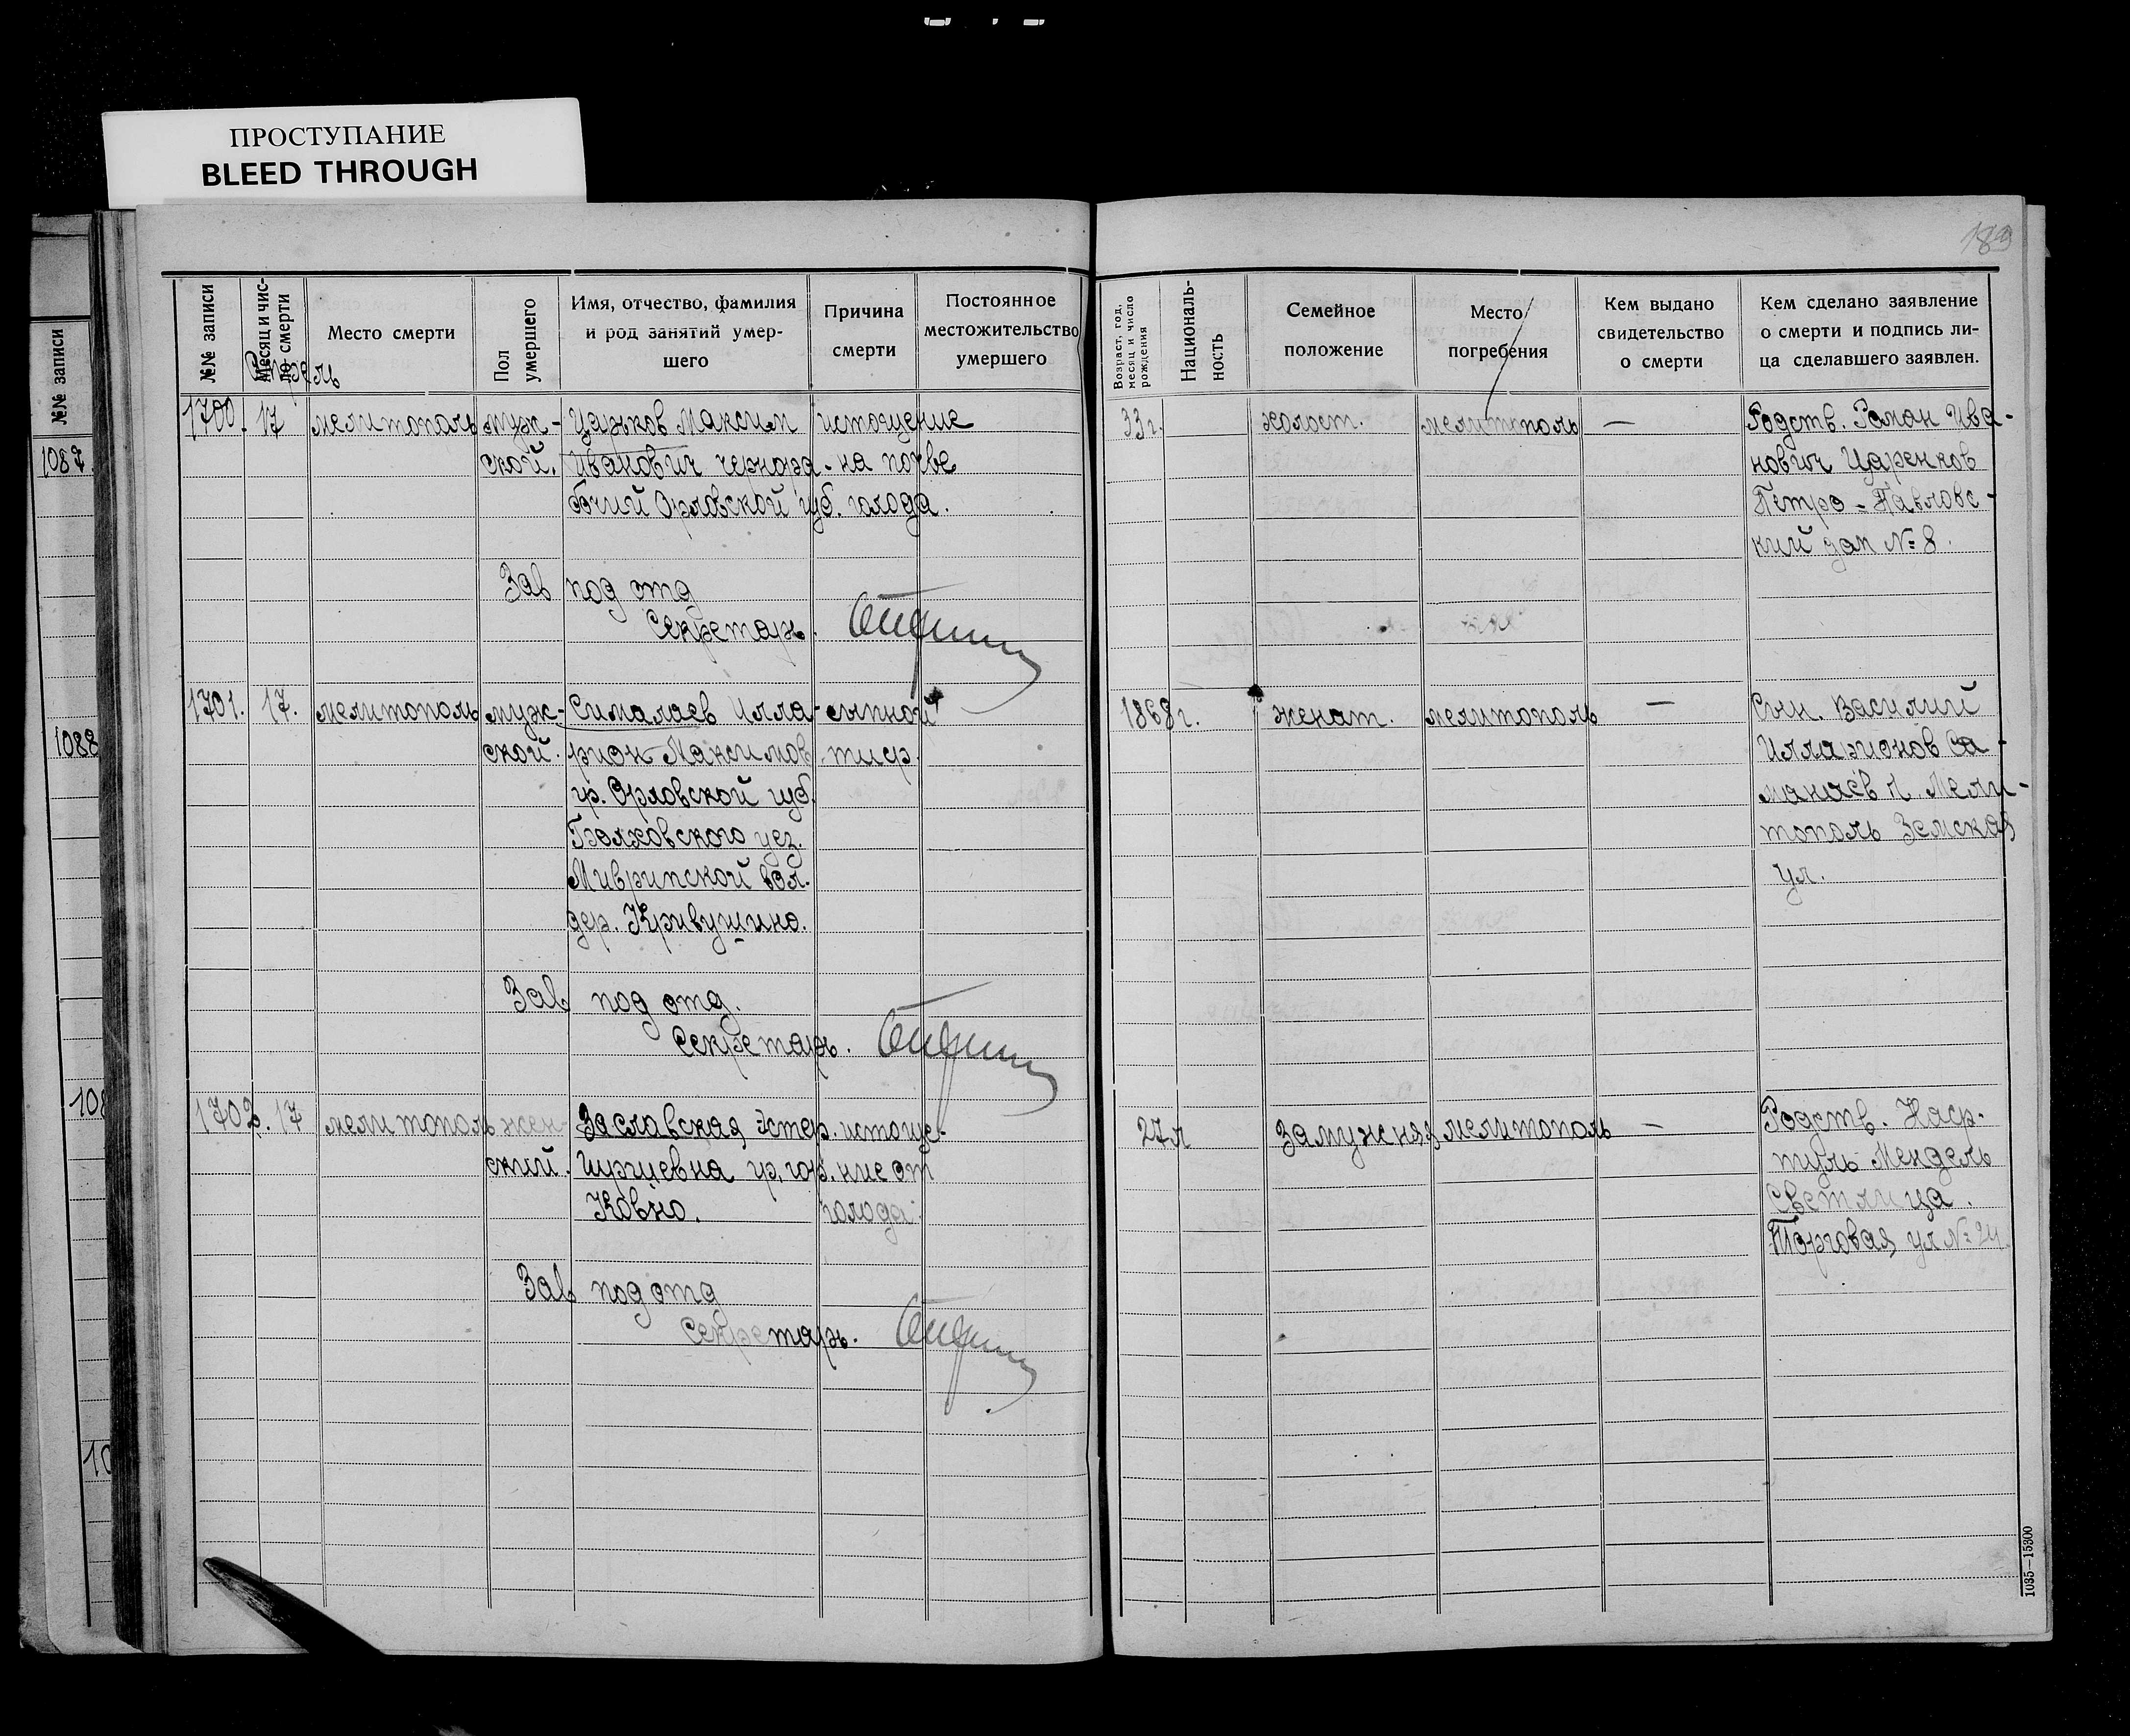 ПРОСТУПАНИЕ
BLEED THROUGH
189
№№ записи
1087.
1088
108
10
№№ записи
Месяц и чис-
ло смерти
Апрель
Место смерти
Пол
умершего
Имя, отчество, фамилия
и род занятий умер-
шего
Причина
смерти
Постоянное
местожительство
умершего
Возраст, год,
месяц и число
рождения
Националь-
ность
Семейное
положение
Место
погребения
Кем выдано
свидетельство
о смерти
Кем сделано заявление
о смерти и подпись ли-
ца сделавшего заявлен.
1700. 17 мелитополь муж- Царьков Максим истощение 33 г. холост. мелитополь — Родств. Роман Ива-
ской. Иванович чернора- на почве нович Царенков
бочий Орловской губ. голода. Петро-Павловс-
кий дом №8.
Зав под отд
Секретарь.
1701. 17. мелитополь муж- Сималаев Илла- сыпной 1868 г. женат. мелитополь — Сын. Василий
ской. рион Максимов тиф. Илларионов Са-
гр. Орловской губ. манаев г. Мели-
Болховского уез. тополь Земская
Мивринской вол. ул.
дер. Кривушино.
Зав под отд.
Секретарь.
1702. 17 мелитополь жен- Заславская Эстер. истоще- 27 л замужняя мелитополь — Родств.
ский. гр. гор. ние от Мендель
Ковно. голода. Светлица.
Торговая ул №24.
Зав под отд
Секретарь.
1035—15300